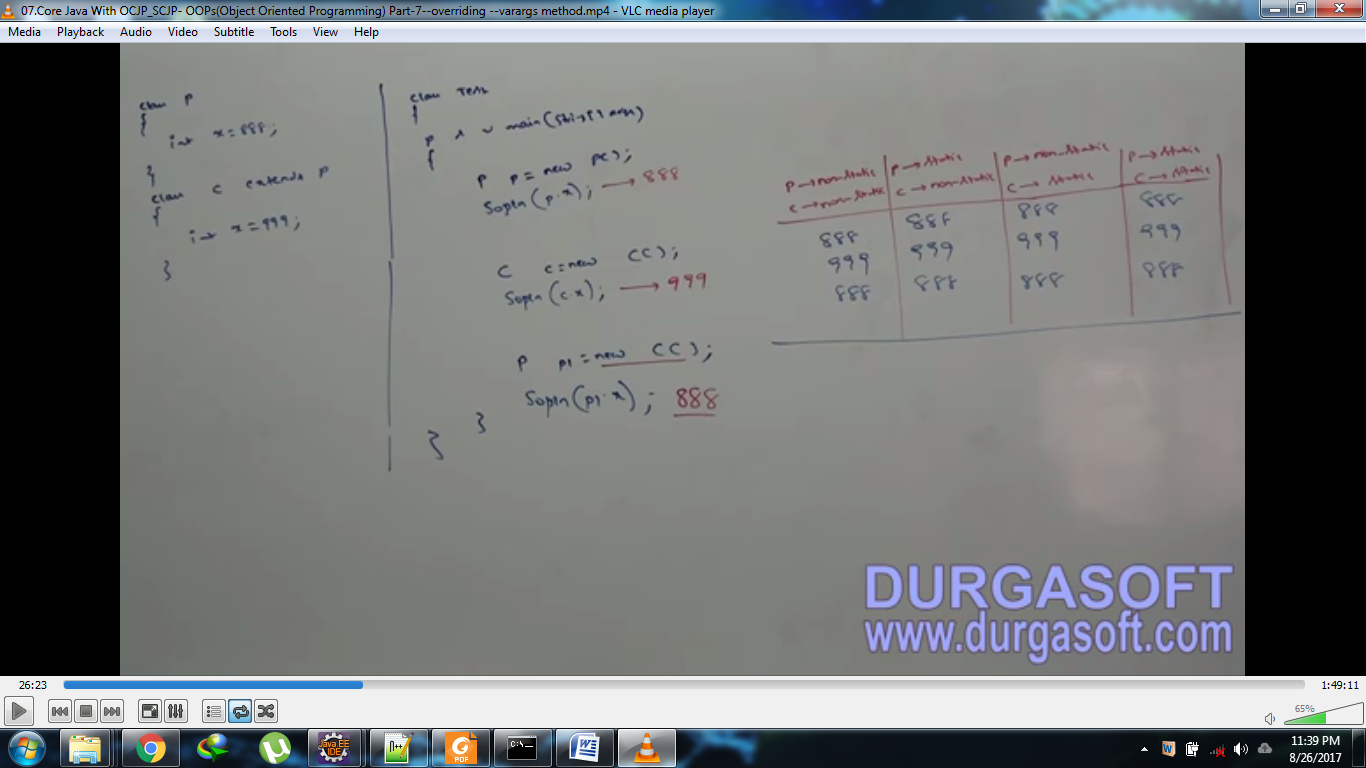 07.Core Java With OCJP_SCJP- OOPs(Object Oriented Programming) Part-7--overriding --varargs method.mp4 - VLC media player
Media Playback Audio Video Subtitle Tools View Help
class P
{
int x=888;
}
class C extends P
{
int x=999;
}
class Test
{
P s v main(String[] args)
{
P p=new P();
Sopln(p.x); → 888
C c=new C();
Sopln(c.x); → 999
P p1=new C();
Sopln(p1.x); 888
}
}
P→non-static P→static P→non-static P→static
C→non-static C→non-static C→static C→static
888 888 888 888
999 999 999 999
888 888 888 888
DURGASOFT
www.durgasoft.com
26:23 1:49:11
65%
Java EE
IDE
n++
PDF
C:\
W
11:39 PM
8/26/2017